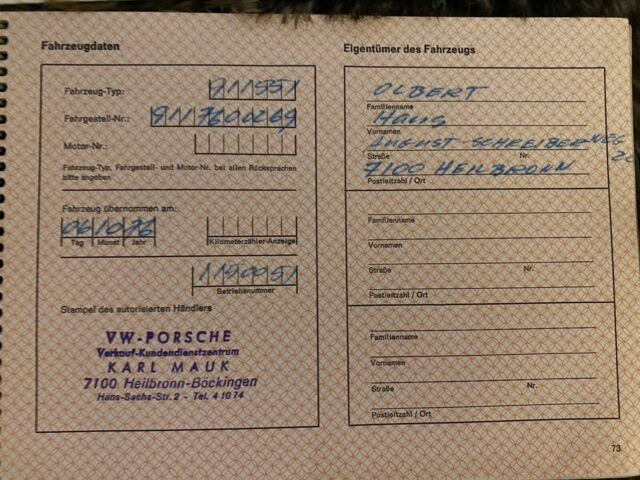 Fahrzeugdaten
Fahrzeug-Typ: 911551
Fahrgestell-Nr.: 9117600269
Motor-Nr.:
Fahrzeug-Typ, Fahrgestell- und Motor-Nr. bei allen Rücksprachen
bitte angeben
Fahrzeug übernommen am:
061076
Tag Monat Jahr
Kilometerzähler-Anzeige
Betriebsnummer
Stempel des autorisierten Händlers
VW-PORSCHE
Verkauf-Kundendienstzentrum
KARL MAUK
7100 Heilbronn-Böckingen
Hans-Sachs-Str. 2 - Tel. 41074
Eigentümer des Fahrzeugs
OLBERT
Familienname
Hans
Vornamen
AUGUST-SCHREIBER WEG
Straße Nr.
7100 HEILBRONN
Postleitzahl / Ort
Familienname
Vornamen
Straße Nr.
Postleitzahl / Ort
Familienname
Vornamen
Straße Nr.
Postleitzahl / Ort
73